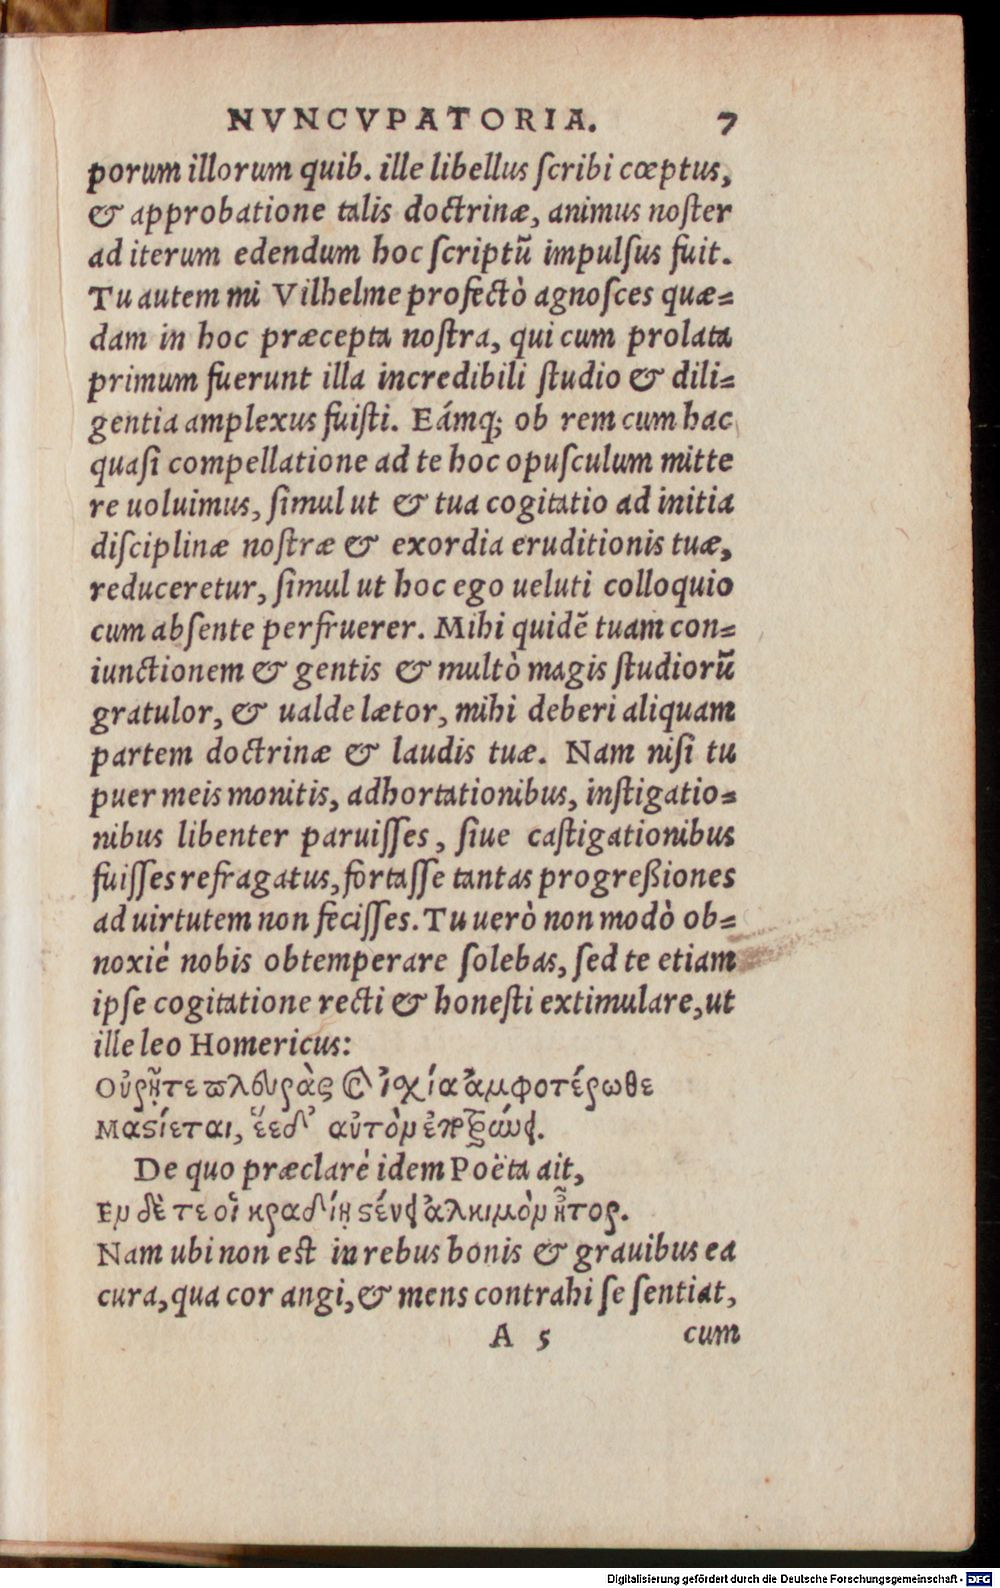 NVNCVPATORIA. 7
porum illorum quib. ille libellus ſcribi cœptus,
& approbatione talis doctrinæ, animus noſter
ad iterum edendum hoc ſcriptũ impulſus fuit.
Tu autem mi Vilhelme profectò agnoſces quæ=
dam in hoc præcepta noſtra, qui cum prolata
primum fuerunt illa incredibili ſtudio & dili=
gentia amplexus fuiſti. Eámq; ob rem cum hac
quaſi compellatione ad te hoc opuſculum mitte
re uoluimus, ſimul ut & tua cogitatio ad initia
diſciplinæ noſtræ & exordia eruditionis tuæ,
reduceretur, ſimul ut hoc ego ueluti colloquio
cum abſente perfruerer. Mihi quidẽ tuam con=
iunctionem & gentis & multò magis ſtudiorũ
gratulor, & ualde lætor, mihi deberi aliquam
partem doctrinæ & laudis tuæ. Nam niſi tu
puer meis monitis, adhortationibus, inſtigatio=
nibus libenter paruiſſes, ſiue caſtigationibus
fuiſſes refragatus, fortaſſe tantas progreßiones
ad uirtutem non feciſſes. Tu uerò non modò ob=
noxiè nobis obtemperare ſolebas, ſed te etiam
ipſe cogitatione recti & honeſti extimulare, ut
ille leo Homericus:
Οὐρῇ τε πλευρὰς καὶ ἰσχία ἀμφοτέρωθε
Μαστίεται, ἓε δ' αὐτὸν ἐποτρύνει.
De quo præclarè idem Poëta ait,
Εν δέ τε οἷ κραδίῃ στένει ἄλκιμον ἦτορ.
Nam ubi non eſt in rebus bonis & grauibus ea
cura, qua cor angi, & mens contrahi ſe ſentiat,
A 5 cum
Digitalisierung gefördert durch die Deutsche Forschungsgemeinschaft - DFG